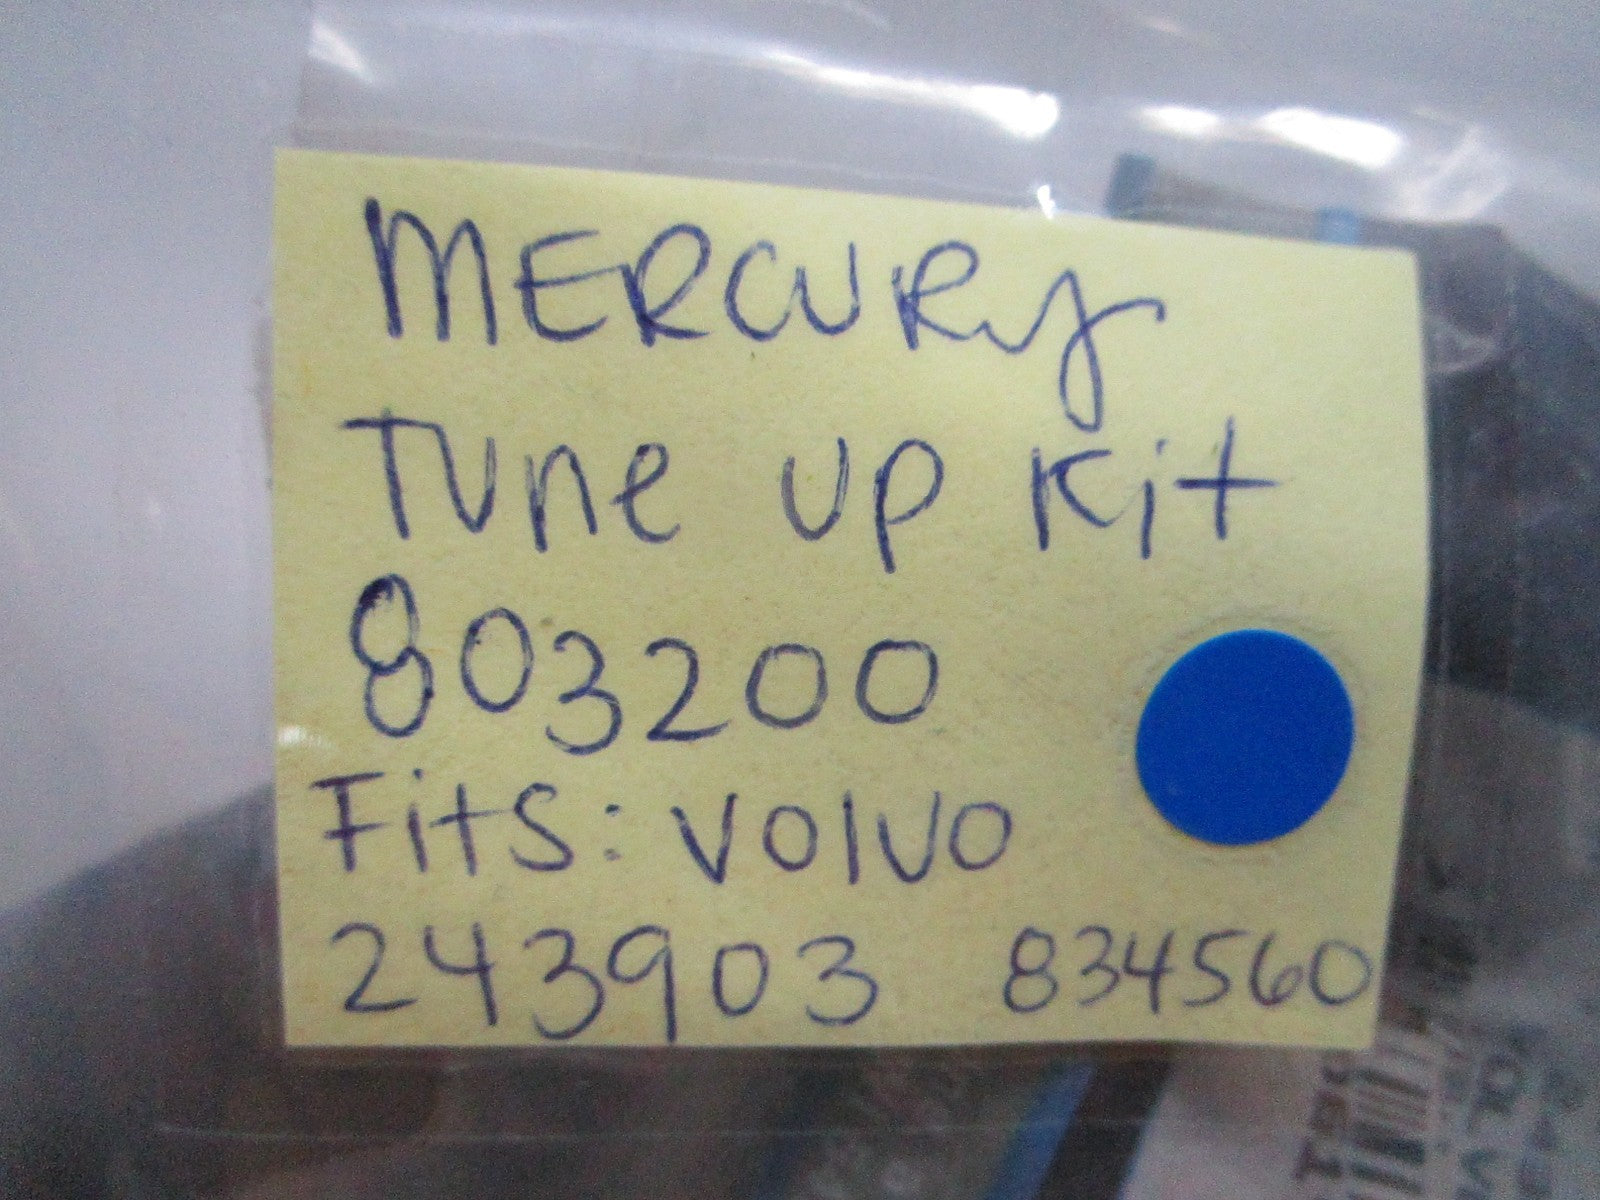 MERCURy
Tune up Kit
803200
Fits: Volvo
243903 834560